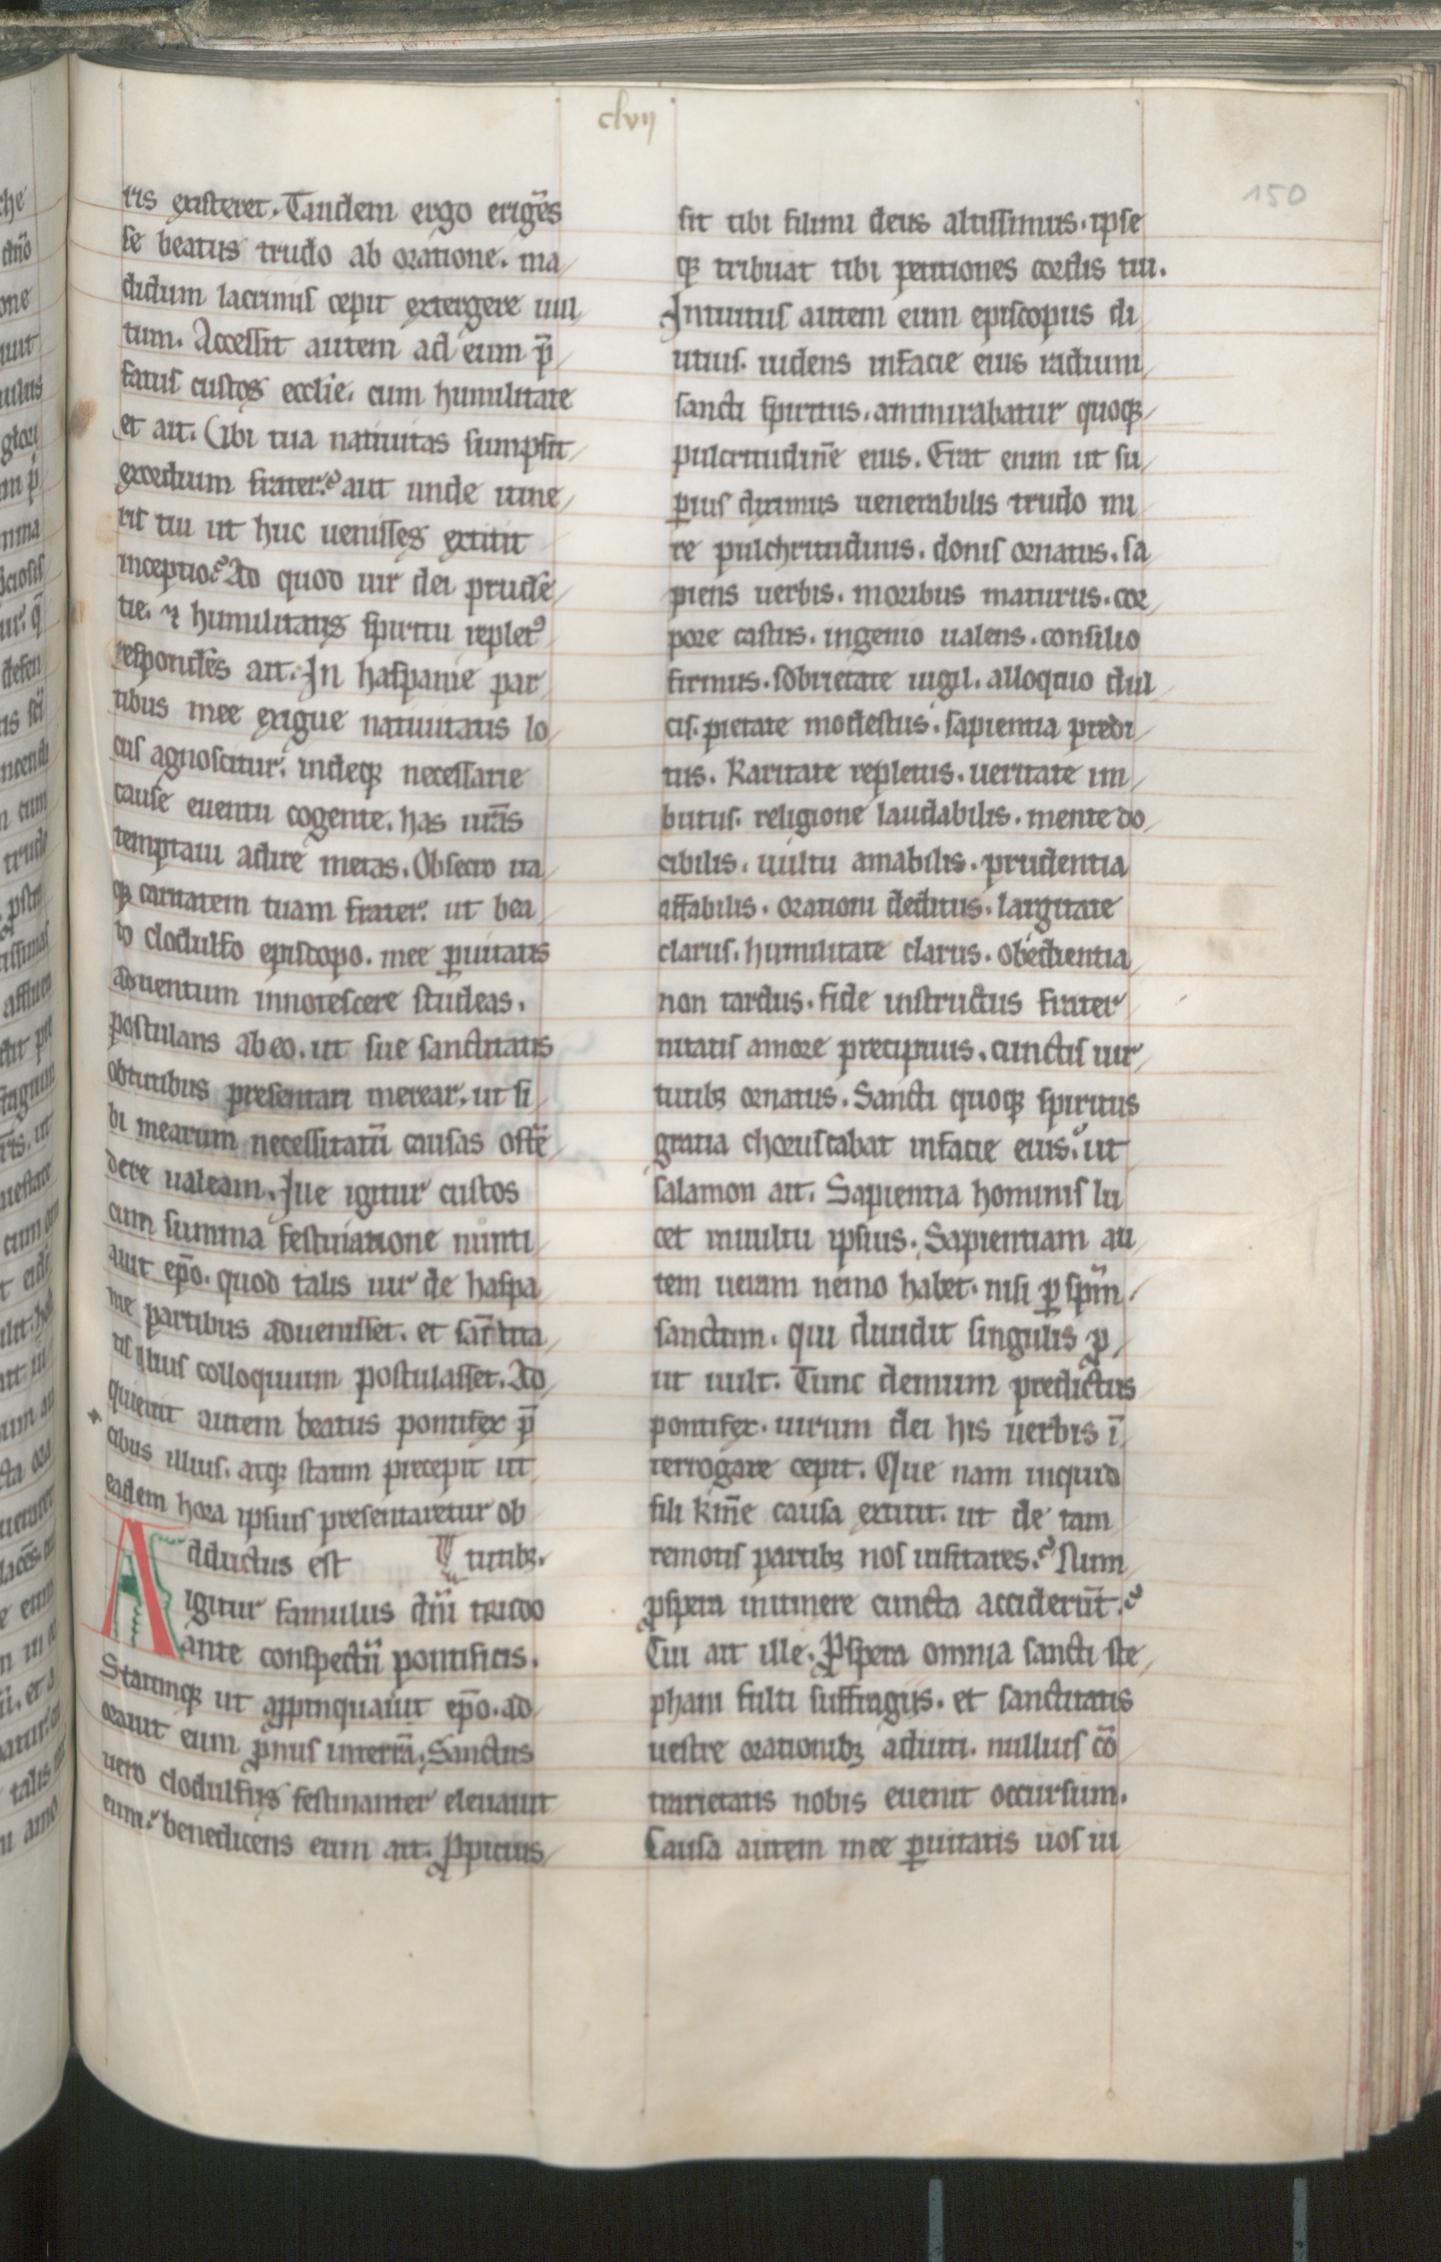 clvij
150
tis existeret. Tandem ergo erigēs
se beatus trudo ab oratione. ma
didum lacrimis cepit extergere uul
tum. Accessit autem ad eum p̄
fatus custos ecclīe. cum humilitate
et ait. Vbi tua natiuitas sumpsit
exordium frater? aut unde itine
ris tui ut huc uenisses extitit
inceptio? Ad quod uir dei prudē
tie. ⁊ humilitatis spiritu replet⁹
respondēs ait. In haspanie par
tibus mee exigue natiuitatis lo
cus agnoscitur. indeqꝫ necessarie
cause euentu cogente. has urās
temptaui adire metas. Obsecro ita
qꝫ caritatem tuam frater. ut bea
to clodulfo episcopo. mee ꝑuitatis
aduentum innotescere studeas.
postulans ab eo. ut sue sanctitatis
obtutibus presentari merear. ut si
bi mearum necessitatū causas ostē
dere ualeam. Iue igitur custos
cum summa festinatione nunti
auit ep̄o. quod talis uir de haspa
nie partibus aduenisset. et sanctita
tis illius colloquium postulasset. Ad
quieuit autem beatus pontifex p̄
cibus illius. atqꝫ statim precepit ut
eadem hora ipsius presentaretur ob
Adductus est ¶ tutibꝫ.
igitur famulus dn̄i trudo
ante conspectū pontificis.
Statimqꝫ ut aꝓpinquauit ep̄o. ad
orauit eum ꝓnus in terrā. Sanctus
uero clodulfus festinanter eleuauit
eum. benedicens eum ait. Ꝓpicius
sit tibi filimi deus altissimus. ipse
qꝫ tribuat tibi petitiones cordis tui.
Intuitus autem eum episcopus di
utius. uidens infacie eius radium
sancti spiritus. ammirabatur quoqꝫ
pulcritudinē eius. Erat enim ut su
ꝑius diximus uenerabilis trudo mi
re pulchritudinis. donis ornatus. sa
piens uerbis. moribus maturus. cor
pore castus. ingenio ualens. consilio
firmus. sobrietate uigil. alloquio dul
cis. pietate modestus. sapientia predi
tus. Karitate repletus. ueritate im
butus. religione laudabilis. mente do
cibilis. uultu amabilis. prudentia
affabilis. orationi deditus. largitate
clarus. humilitate clarus. obedientia
non tardus. fide instructus frater
nitatis amore precipuus. cunctis uir
tutibꝫ ornatus. Sancti quoqꝫ spiritus
gratia choruscabat infacie eius. ut
salamon ait. Sapientia hominis lu
cet inuultu ipsius. Sapientiam au
tem ueram nemo habet. nisi ꝑ spm̄
sanctum. qui diuidit singulis ꝓ
ut uult. Tunc demum predictus
pontifex. uirum dei his uerbis ī
terrogare cepit. Que nam inquid
fili kmē causa extitit. ut de tam
remotis partibꝫ nos uisitares? Num
ꝓspera initinere cuncta acciderūt?
Cui ait ille. Ꝓspera omnia sancti ste
phani fulti suffragijs. et sanctitatis
uestre orationibꝫ adiuti. nullius cō
trarietatis nobis euenit occursum.
Causa autem mee ꝑuitatis uos ui